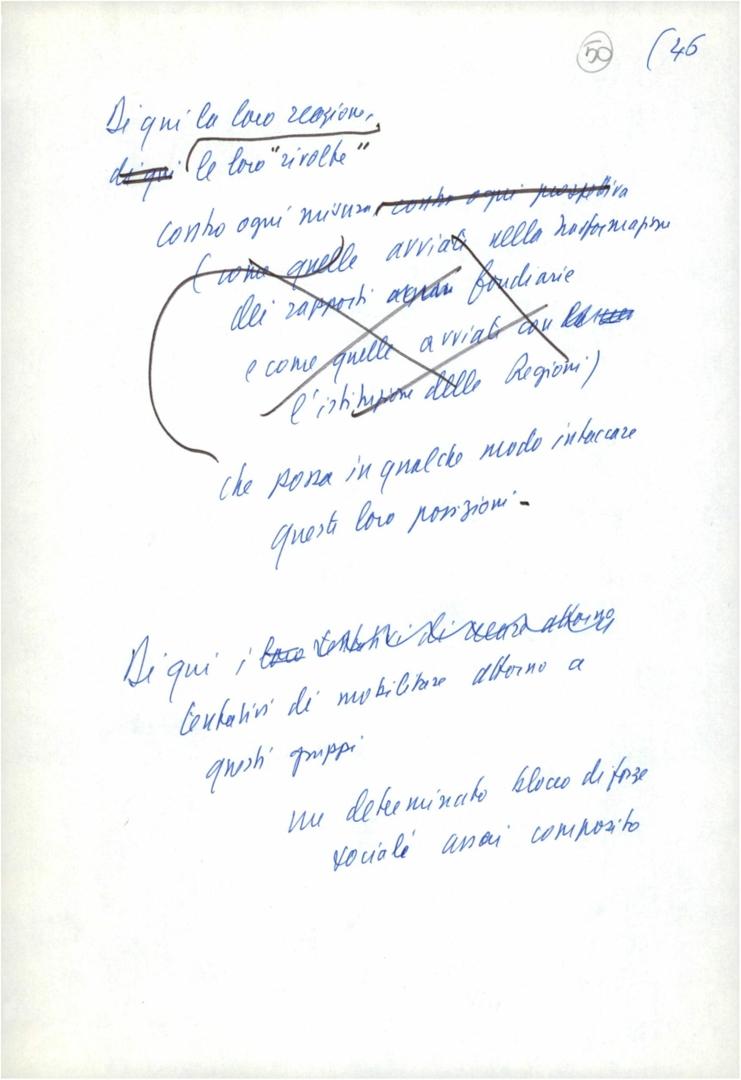 50 (46
Di qui la loro reazione,
di qui le loro "rivolte"
contro ogni misura, contro ogni prospettiva
(come quelle avviate nella trasformazione
dei rapporti agrari fondiarie
e come quelle avviate con la
l'istituzione delle Regioni)
che possa in qualche modo intaccare
queste loro posizioni -
Di qui i loro tentativi di creare attorno
tentativi di mobilitare attorno a
questi gruppi
un determinato blocco di forze
sociali assai composito